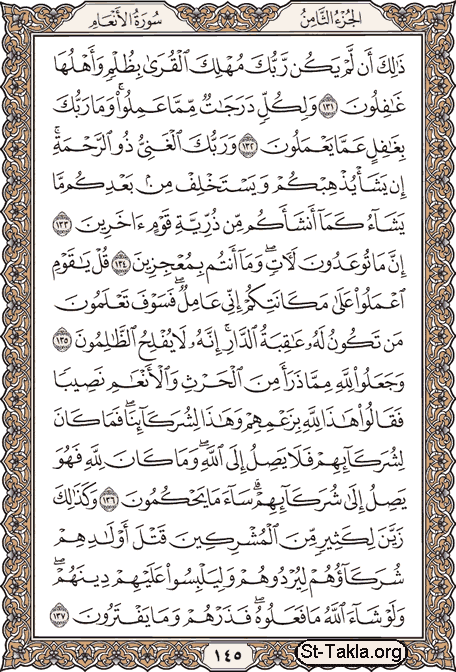 الجزء الثامن
سورة الأنعام
ذَٰلِكَ أَن لَّمْ يَكُن رَّبُّكَ مُهْلِكَ ٱلْقُرَىٰ بِظُلْمٍ وَأَهْلُهَا
غَٰفِلُونَ ١٣١ وَلِكُلٍّ دَرَجَٰتٌ مِّمَّا عَمِلُوا۟ وَمَا رَبُّكَ
بِغَٰفِلٍ عَمَّا يَعْمَلُونَ ١٣٢ وَرَبُّكَ ٱلْغَنِىُّ ذُو ٱلرَّحْمَةِ
إِن يَشَأْ يُذْهِبْكُمْ وَيَسْتَخْلِفْ مِنۢ بَعْدِكُم مَّا
يَشَآءُ كَمَآ أَنشَأَكُم مِّن ذُرِّيَّةِ قَوْمٍ ءَاخَرِينَ ١٣٣
إِنَّ مَا تُوعَدُونَ لَءَاتٍ وَمَآ أَنتُم بِمُعْجِزِينَ ١٣٤ قُلْ يَٰقَوْمِ
ٱعْمَلُوا۟ عَلَىٰ مَكَانَتِكُمْ إِنِّى عَامِلٌ فَسَوْفَ تَعْلَمُونَ
مَن تَكُونُ لَهُۥ عَٰقِبَةُ ٱلدَّارِ إِنَّهُۥ لَا يُفْلِحُ ٱلظَّٰلِمُونَ ١٣٥
وَجَعَلُوا۟ لِلَّهِ مِمَّا ذَرَأَ مِنَ ٱلْحَرْثِ وَٱلْأَنْعَٰمِ نَصِيبًا
فَقَالُوا۟ هَٰذَا لِلَّهِ بِزَعْمِهِمْ وَهَٰذَا لِشُرَكَآئِنَا فَمَا كَانَ
لِشُرَكَآئِهِمْ فَلَا يَصِلُ إِلَى ٱللَّهِ وَمَا كَانَ لِلَّهِ فَهُوَ
يَصِلُ إِلَىٰ شُرَكَآئِهِمْ سَآءَ مَا يَحْكُمُونَ ١٣٦ وَكَذَٰلِكَ
زَيَّنَ لِكَثِيرٍ مِّنَ ٱلْمُشْرِكِينَ قَتْلَ أَوْلَٰدِهِمْ
شُرَكَآؤُهُمْ لِيُرْدُوهُمْ وَلِيَلْبِسُوا۟ عَلَيْهِمْ دِينَهُمْ
وَلَوْ شَآءَ ٱللَّهُ مَا فَعَلُوهُ فَذَرْهُمْ وَمَا يَفْتَرُونَ ١٣٧
١٤٥
St-Takla.org